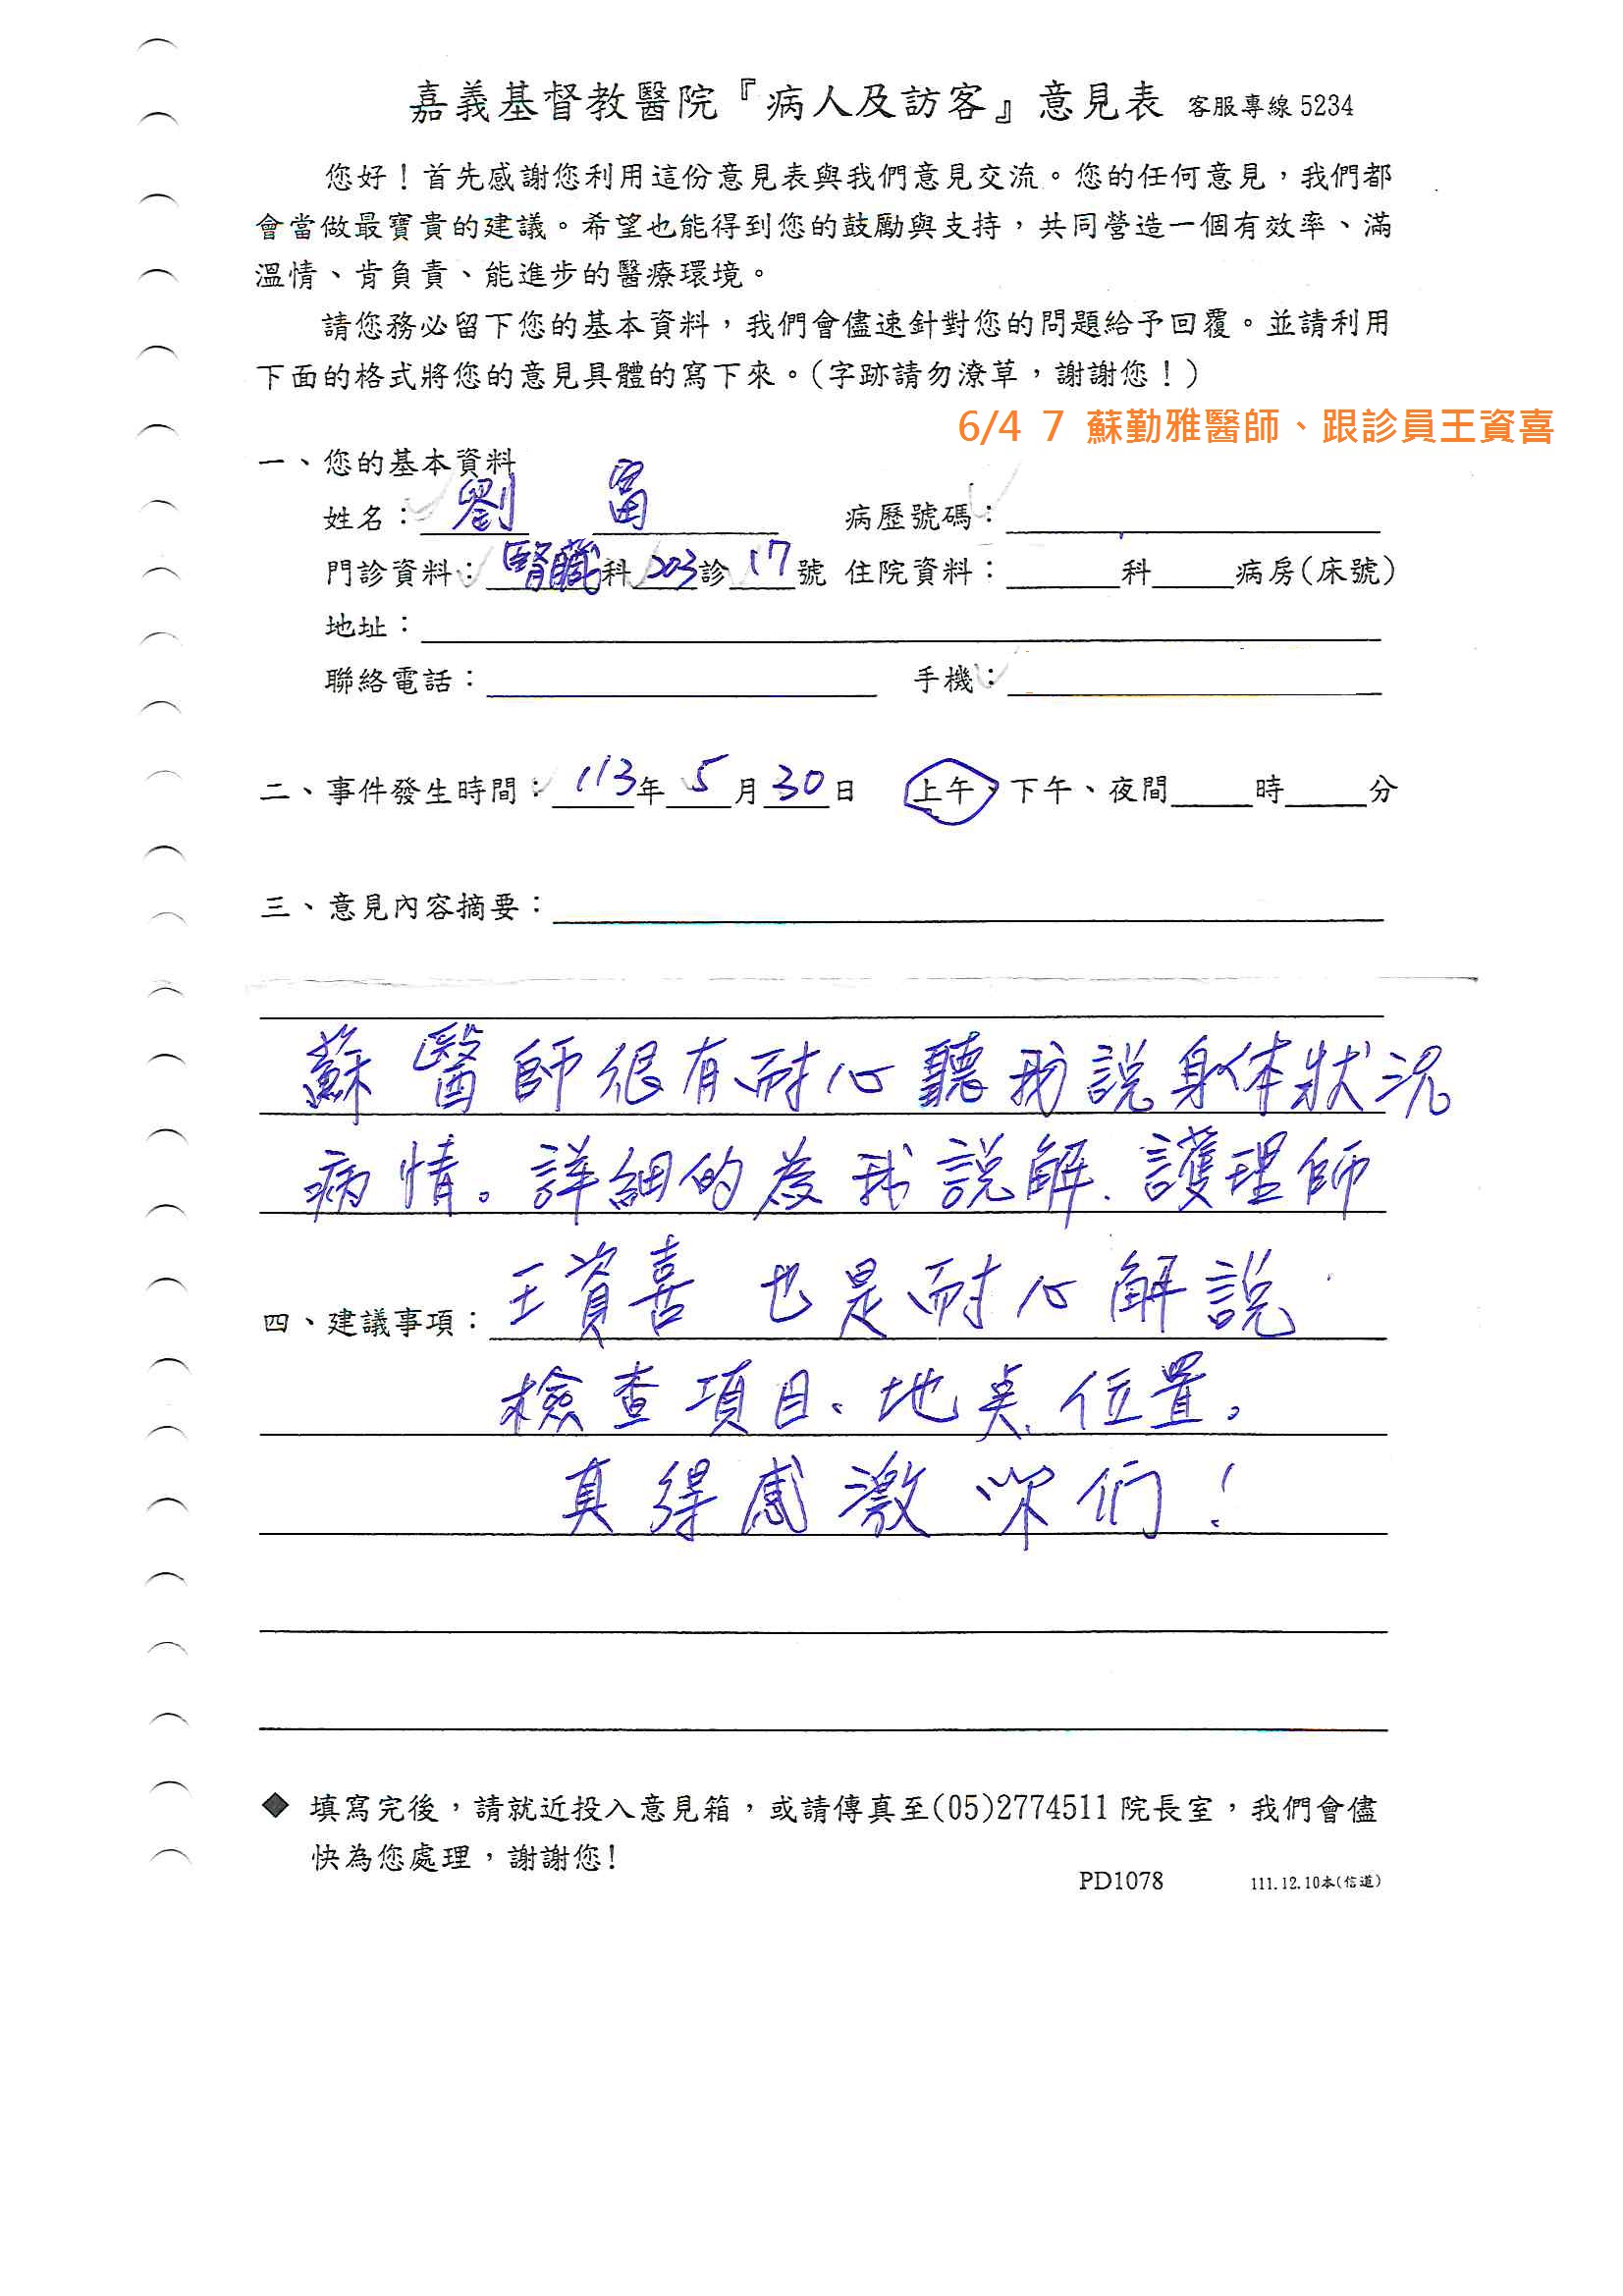 嘉義基督教醫院『病人及訪客』意見表 客服專線 5234
您好！首先感謝您利用這份意見表與我們意見交流。您的任何意見，我們都
會當做最寶貴的建議。希望也能得到您的鼓勵與支持，共同營造一個有效率、滿
溫情、肯負責、能進步的醫療環境。
請您務必留下您的基本資料，我們會儘速針對您的問題給予回覆。並請利用
下面的格式將您的意見具體的寫下來。(字跡請勿潦草，謝謝您！)
6/4 7 蘇勤雅醫師、跟診員王資喜
一、您的基本資料
姓名：劉 富 病歷號碼：
門診資料：腎臟科203診17號 住院資料：科病房(床號)
地址：
聯絡電話： 手機：
二、事件發生時間：113年5月30日 上午、下午、夜間時分
三、意見內容摘要：
蘇醫師很有耐心聽我說身体狀況
病情。詳細的為我說解、護理師
四、建議事項：王資喜 也是耐心解說
檢查項目、地點、位置。
真得感激 你們！
◆ 填寫完後，請就近投入意見箱，或請傳真至(05)2774511 院長室，我們會儘
快為您處理，謝謝您!
PD1078 111.12.10本(信道)